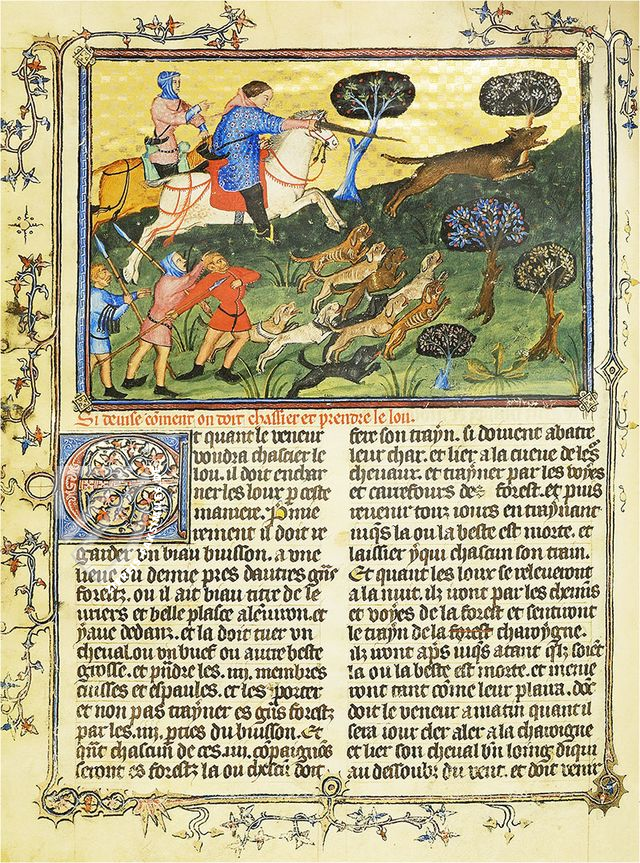 Si devise coment on doit chassier et prendre le lou.
Et quant le veneur
vondra chascier le
lou. il doit enchar
ner les loux p ceste
maniere. Premie
rement il doit re
garder vn biau buisson. a vne
lieue ou demie pres dautres gns
forestz. ou il ait biau titre de le
uriers et belle plasce alenuiron. et
yaue dedanz. et la doit tuer vn
cheual. ou vn buef ou autre beste
grosse. et prdre les .iiij. membres
cuisses et espaules. et les porter
et non pas trayner es gns forestz
par les .iiij. pties du buisson. Et
qnt chascun de ces .iiij. copaignos
seront es forestz la ou chascun doit
fere son trayn. si doiuent abatre
leur char. et lier a la cueue de les
cheuaux. et trayner par les voyes
et carrefours des forest. et puis
reuenir tous iours en traynant
iusqs la ou la beste est morte. et
laissier yqui chascun son train.
Et quant les loux se releueront
a la nuit. ilz vont par les chemis
et voyes de la forest et sentiront
le trayn de la forest charoygne.
ilz vont aps iusqs atant qlz soiet
la ou la beste est morte. et menie
ront tant come leur plaira. doc
doit le veneur a matin quant il
sera iour cler aler a la charoigne
et lier son cheual bn loing diqui
au dessoubz du vent. et doit venir